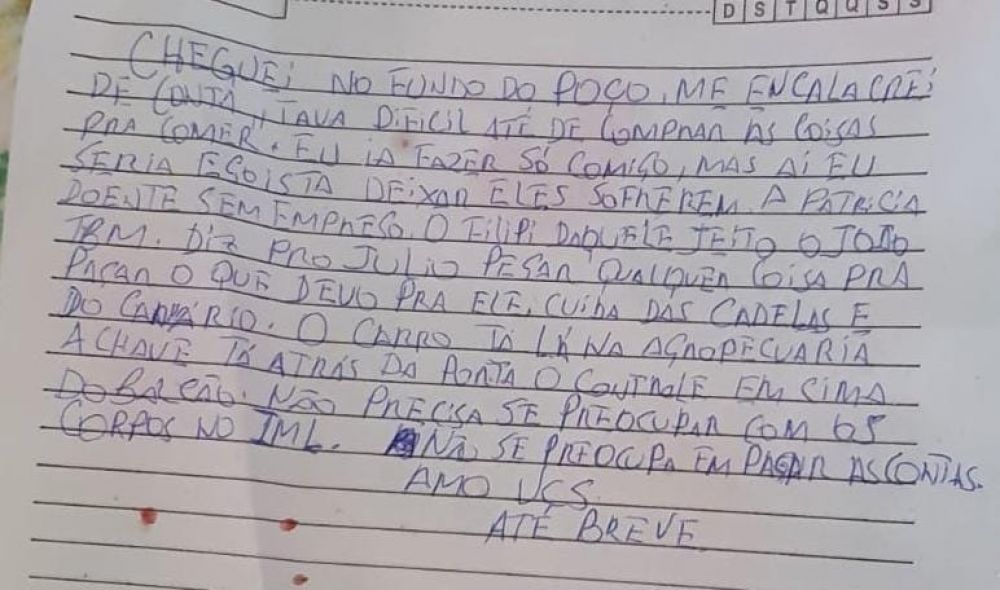 D S T Q Q S S
CHEGUEI NO FUNDO DO POÇO, ME ENCALACREI
DE CONTA, TAVA DIFICIL ATÉ DE COMPRAR AS COISAS
PRA COMER. EU IA FAZER SÓ COMIGO, MAS AI EU
SERIA EGOISTA DEIXAR ELES SOFREREM. A PATRICIA
DOENTE SEM EMPREGO. O FILIPI DAQUELE JEITO O JOÃO
TBM. DIZ PRO JULIO PEGAR QUALQUER COISA PRA
PAGAR O QUE DEVO PRA ELE, CUIDA DAS CADELAS E
DO CANÁRIO. O CARRO TA LÁ NA AGROPECUARIA
A CHAVE TÁ ATRÁS DA PORTA O CONTROLE EM CIMA
DO BALCÃO. NÃO PRECISA SE PREOCUPAR COM OS
CORPOS NO IML. NÃO SE PREOCUPA EM PAGAR AS CONTAS.
AMO VCS
ATÉ BREVE